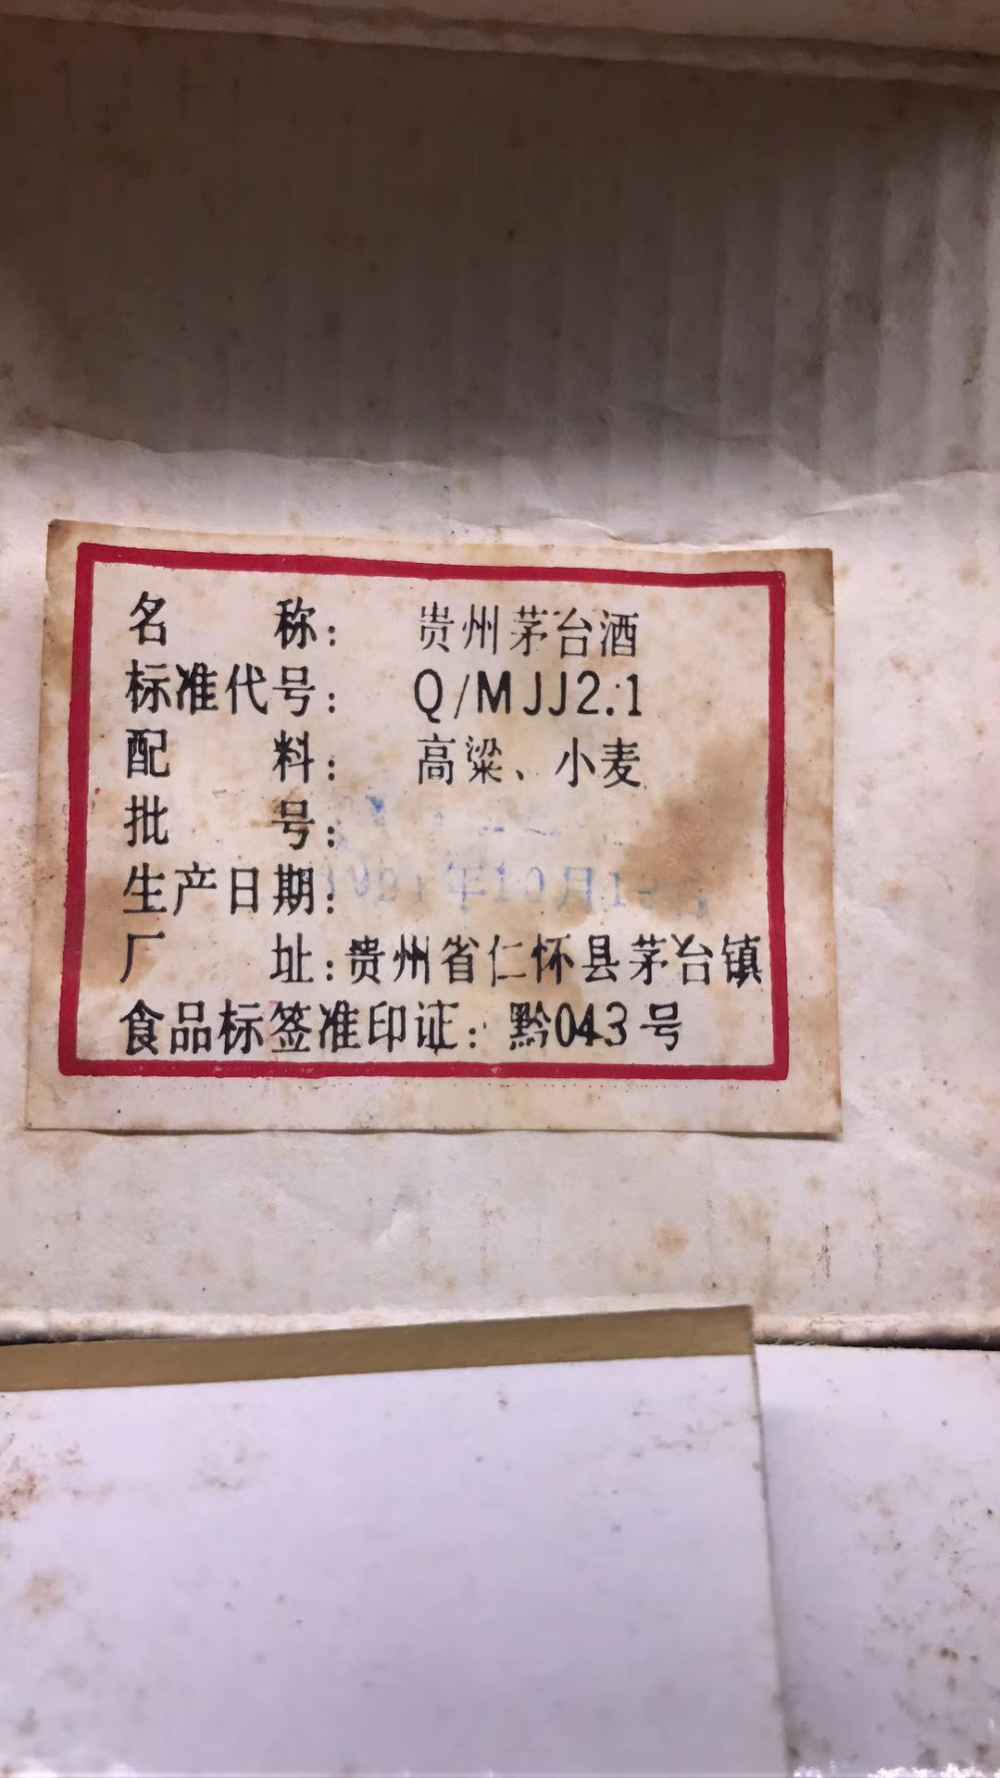 名 称: 贵州茅台酒
标准代号: Q/MJJ2.1
配 料: 高粱、小麦
批 号:
生产日期: 年10月
厂 址:贵州省仁怀县茅台镇
食品标签准印证: 黔043号